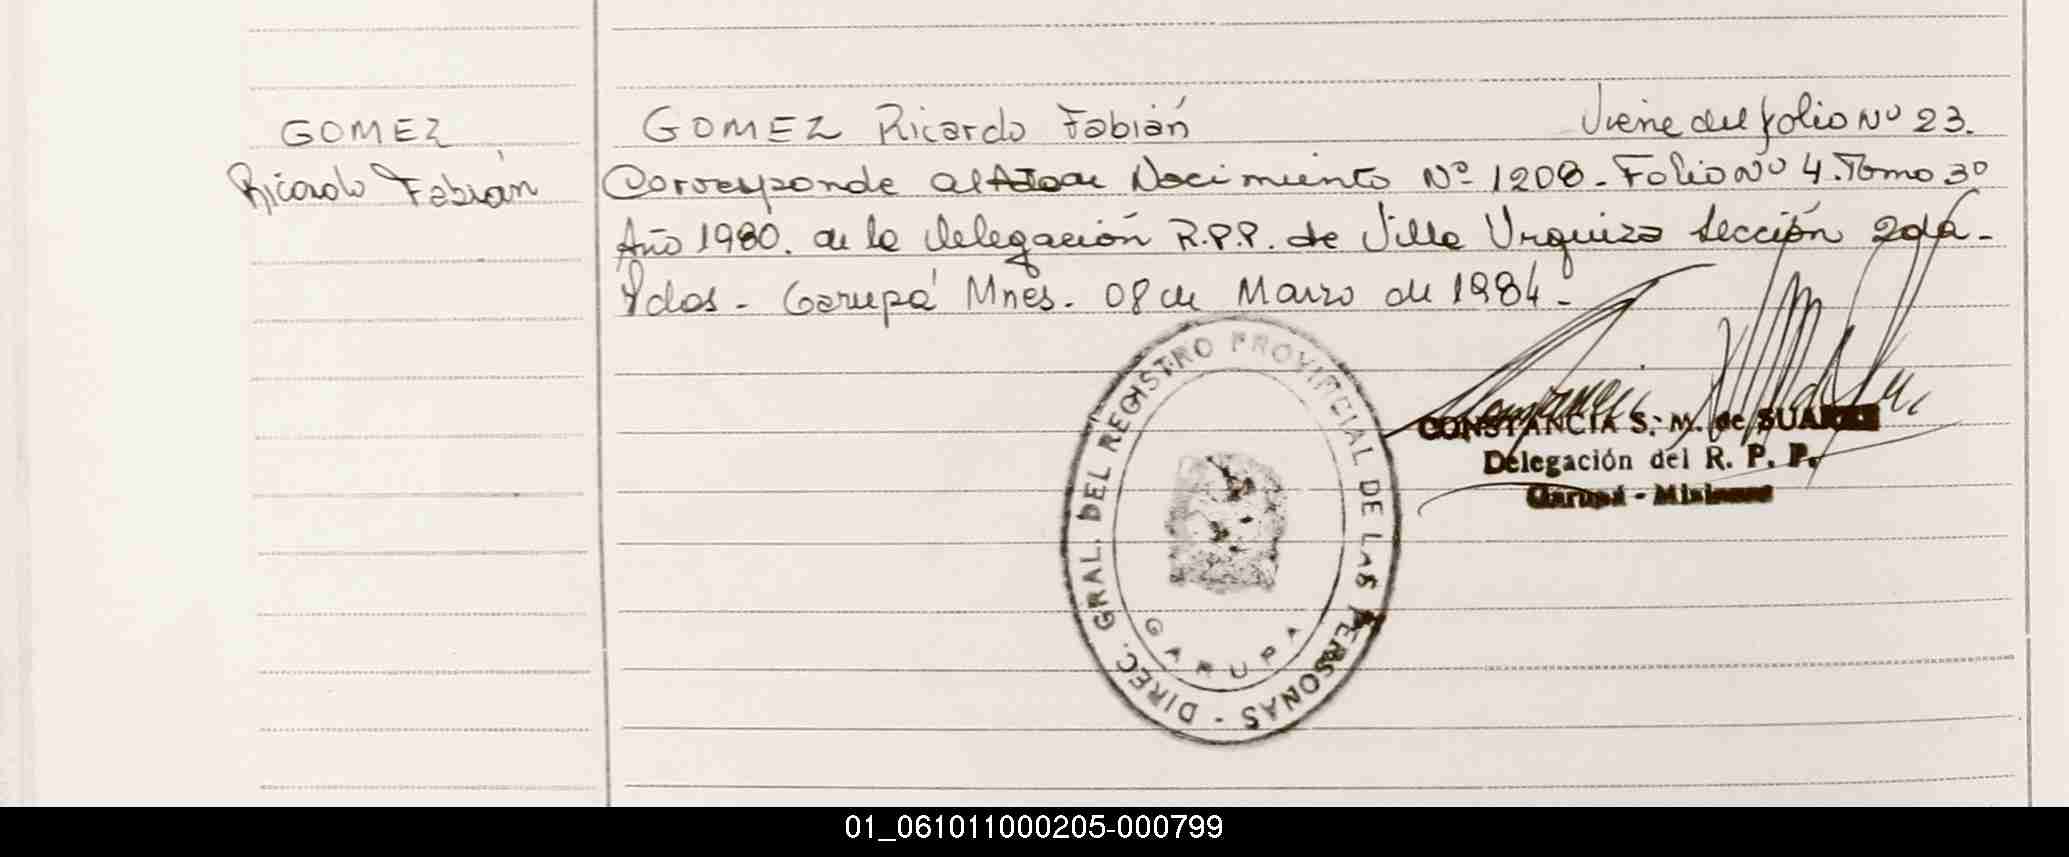 GOMEZ
Ricardo Fabián
GOMEZ Ricardo Fabián Viene del folio Nº 23.
Corresponde al Acta de Nacimiento Nº 1208. Folio Nº 4. Tomo 3º
Año 1980. de la delegación R.P.P. de Villa Urquiza Sección 2da.
Pdas - Garupá Mnes. 08 de Marzo de 1984.
DIREC. GRAL. DEL REGISTRO PROVINCIAL DE LAS PERSONAS -
GARUPA
CONSTANCIA S. M. de SUAREZ
Delegación del R. P. P.
Garupá - Misiones
01_061011000205-000799